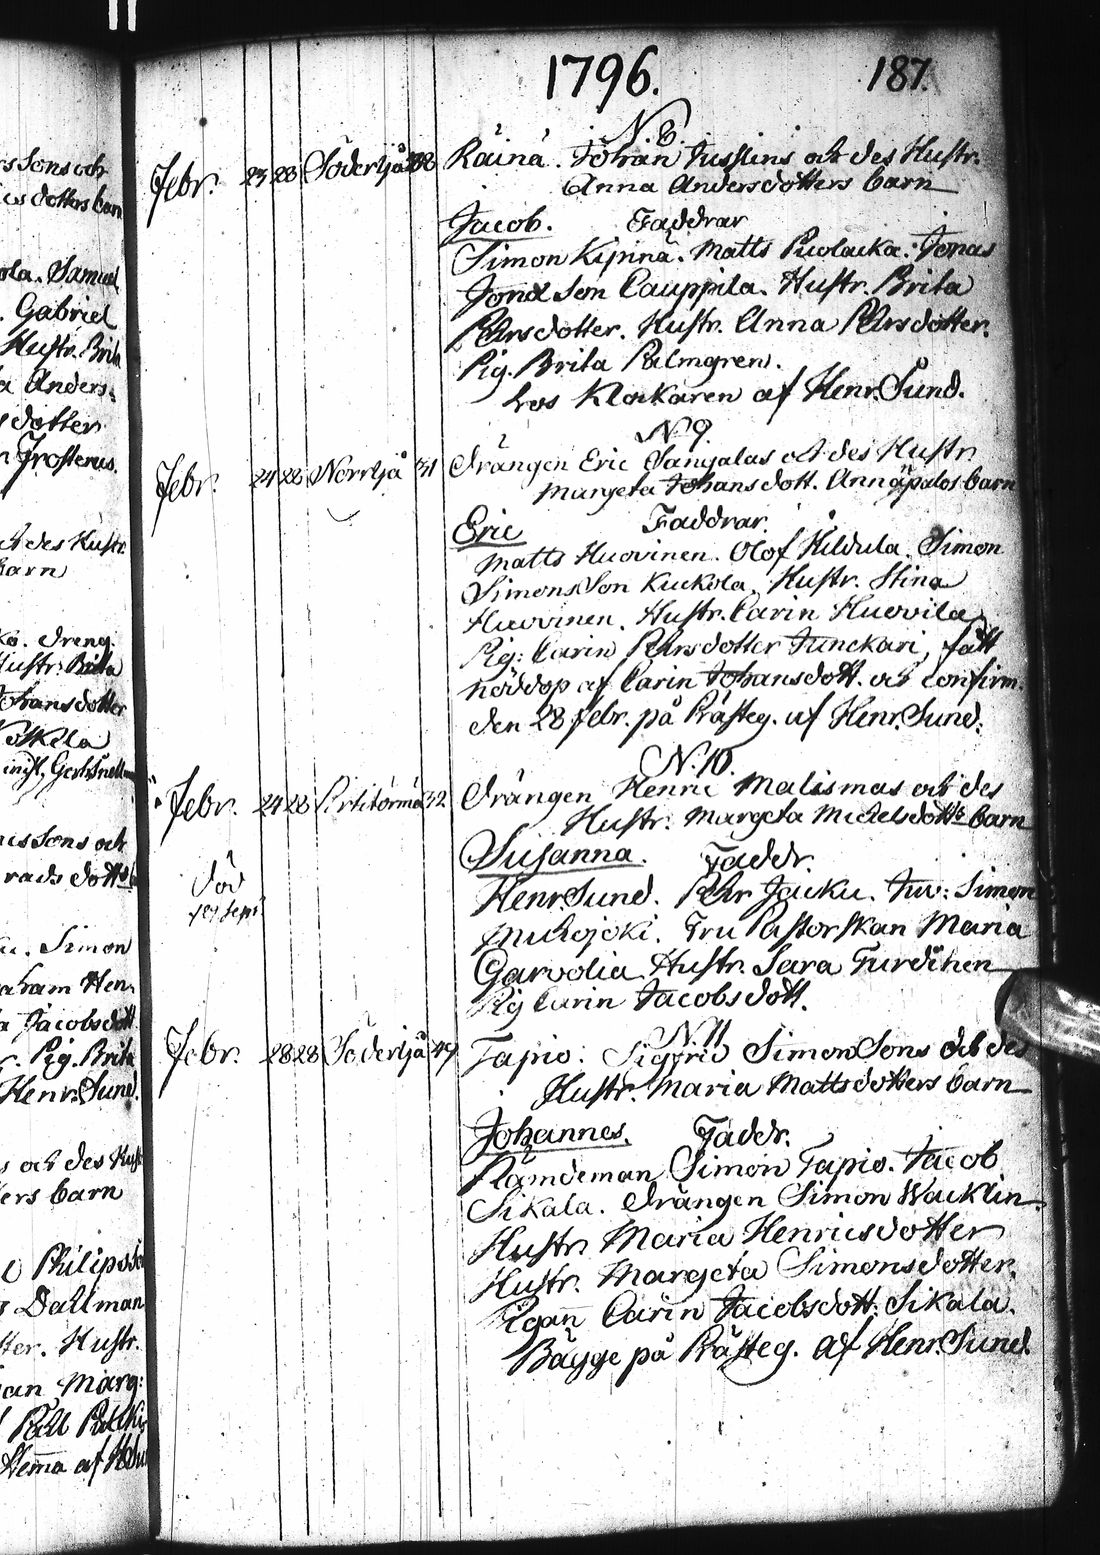 rs sons och
is dotters barn
ola. Samuel
. Gabriel
Hustr. Brita
a Anders:
s dotter
n Frosterus.
och des Hustr
barn
kå. Dreng.
Hustr: Brita
Johansdotter
Kottkila
nis sons och
rads dotts
u. Simon
aham Hen.
a Jacobsdott
r. Pig. Brita
Henr. Sund.
s och des Hust
ters barn
Philipsson
Dallman
ter. Hustr.
an Marg:
Påll
Hema af
1796. 187.
N. 8.
Febr. 23 28 Söderljå 38 Räinä. Johan Jusslins och des Hustr.
Anna Andersdotters barn
Jacob. Faddrar
Simon Kipinä. Matts Puolacka. Jonas
Jonæ Son Cauppila. Hustr. Brita
Pehrsdotter. Hustr. Anna Pehrsdotter.
Pig. Brita Palmgren.
hos Klockaren af Henr. Sund.
N. 9.
Febr. 24 28 Norrljå 31 Drängen Eric Sangalas och des Hustr
Margeta Johansdott. Annäpalos barn
Eric Faddrar.
Matts Huovinen. Olof Hildula. Simon
Simons Son Kuckola. Hustr. Stina
Huovinen. Hustr. Carin Huovila
Pig: Carin Pehrsdotter Junckari, fått
nöddop af Carin Johansdott. och confirm.
den 28 febr. på Prästeg. af Henr. Sund.
N. 10.
Febr. 24 28 Pirttitörmä 32 Drängen Henric Malismas och des
Hustr. Margeta Michelsdotts barn
Susanna. Faddr.
död
Henr. Sund. Pehr Jacku. Juv: Simon
Muhojoki. Fru Pastorskan Maria
Garvolia Hustr. Sara Turdinen
Pig Carin Jacobsdott.
N. 11
Febr. 28 28 Söderljå 49 Tapio. Sigfrid Simon Sons och des
Hustr. Maria Mattsdotters barn
Johannes. Faddr.
Nämdeman Simon Tapio. Jacob
Sikala. Drängen Simon Wacklin.
Hustr. Maria Henricsdotter
Hustr. Margeta Simonsdotter.
Pigan Carin Jacobsdott. Sikala.
Bägge på Prästeg. af Henr. Sund.